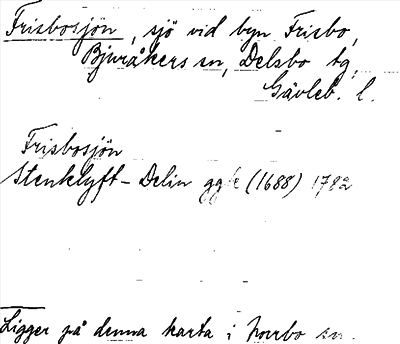 Frisbosjön, sjö vid byn Frisbo,
Bjuråkers sn, Delsbo tg,
Gävleb. l.
Frisbosjön
Stenklyft – Delin ggk (1688) 1782
Ligger på denna karta i Norrbo sn.